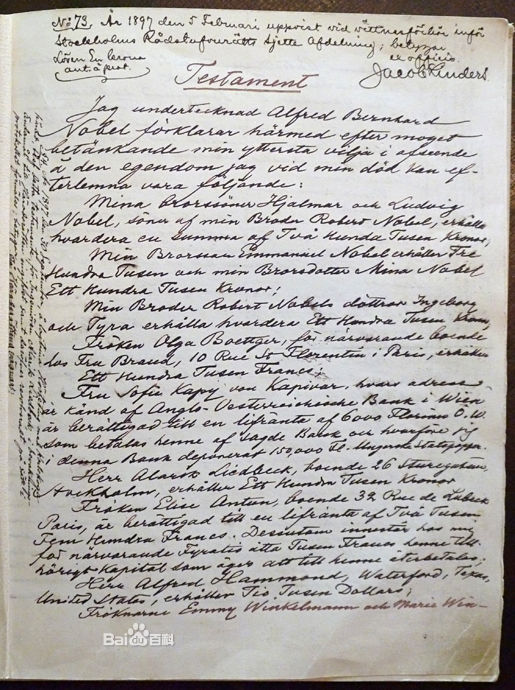 No 73. År 1897 den 5 Februari uppvist vid vittnesförhör inför
Stockholms Rådstufvurätts Sjette Afdelning; betygar
Lösen En krona
ex officio.
ant. å prot.
Testament
Jag undertecknad Alfred Bernhard
Nobel förklarar härmed efter moget
betänkande min yttersta vilja i afseende
å den egendom jag vid min död kan ef-
terlemna vara följande:
Mina Brorsöner Hjalmar och Ludvig
Nobel, söner af min Broder Robert Nobel, erhålla
hvardera en summa af Två Hundra Tusen Kronor;
Min Brorson Emmanuel Nobel erhåller Tre
Hundra Tusen och min Brorsdotter Mina Nobel
Ett Hundra Tusen Kronor;
Min Broder Robert Nobels döttrar Ingeborg
och Tyra erhålla hvardera Ett Hundra Tusen Kronor,
Fröken Olga Boettger, för närvarande boende
hos Fru Brand, 10 Rue St Florentin i Paris, erhåller
Ett Hundra Tusen Francs;
Fru Sofie Kapy von Kapivar, hvars adress
är känd af Anglo-Oesterreichische Bank i Wien
är berättigad till en lifränta af 6000 Florins Ö.W.
som betalas henne af sagde Bank och hvarföre jag
i denna Bank deponerat 150,000 Fl. i Ungerska statspapper.
Herr Alarik Liedbeck, boende 26 Sturegatan,
Stockholm, erhåller Ett Hundra Tusen Kronor
Fröken Elise Antun, boende 32 Rue de Lubeck
Paris, är berättigad till en lifränta af Två Tusen
Fem Hundra Francs. Dessutom innestår hos mig
för närvarande Fyratio åtta Tusen Francs henne till-
hörigt kapital som äger att till henne återbetalas;
Herr Alfred Hammond, Waterford, Texas,
United States, erhåller Tio Tusen Dollars;
Fröknarne Emmy Winkelmann och Marie Win-
Bai du 百科